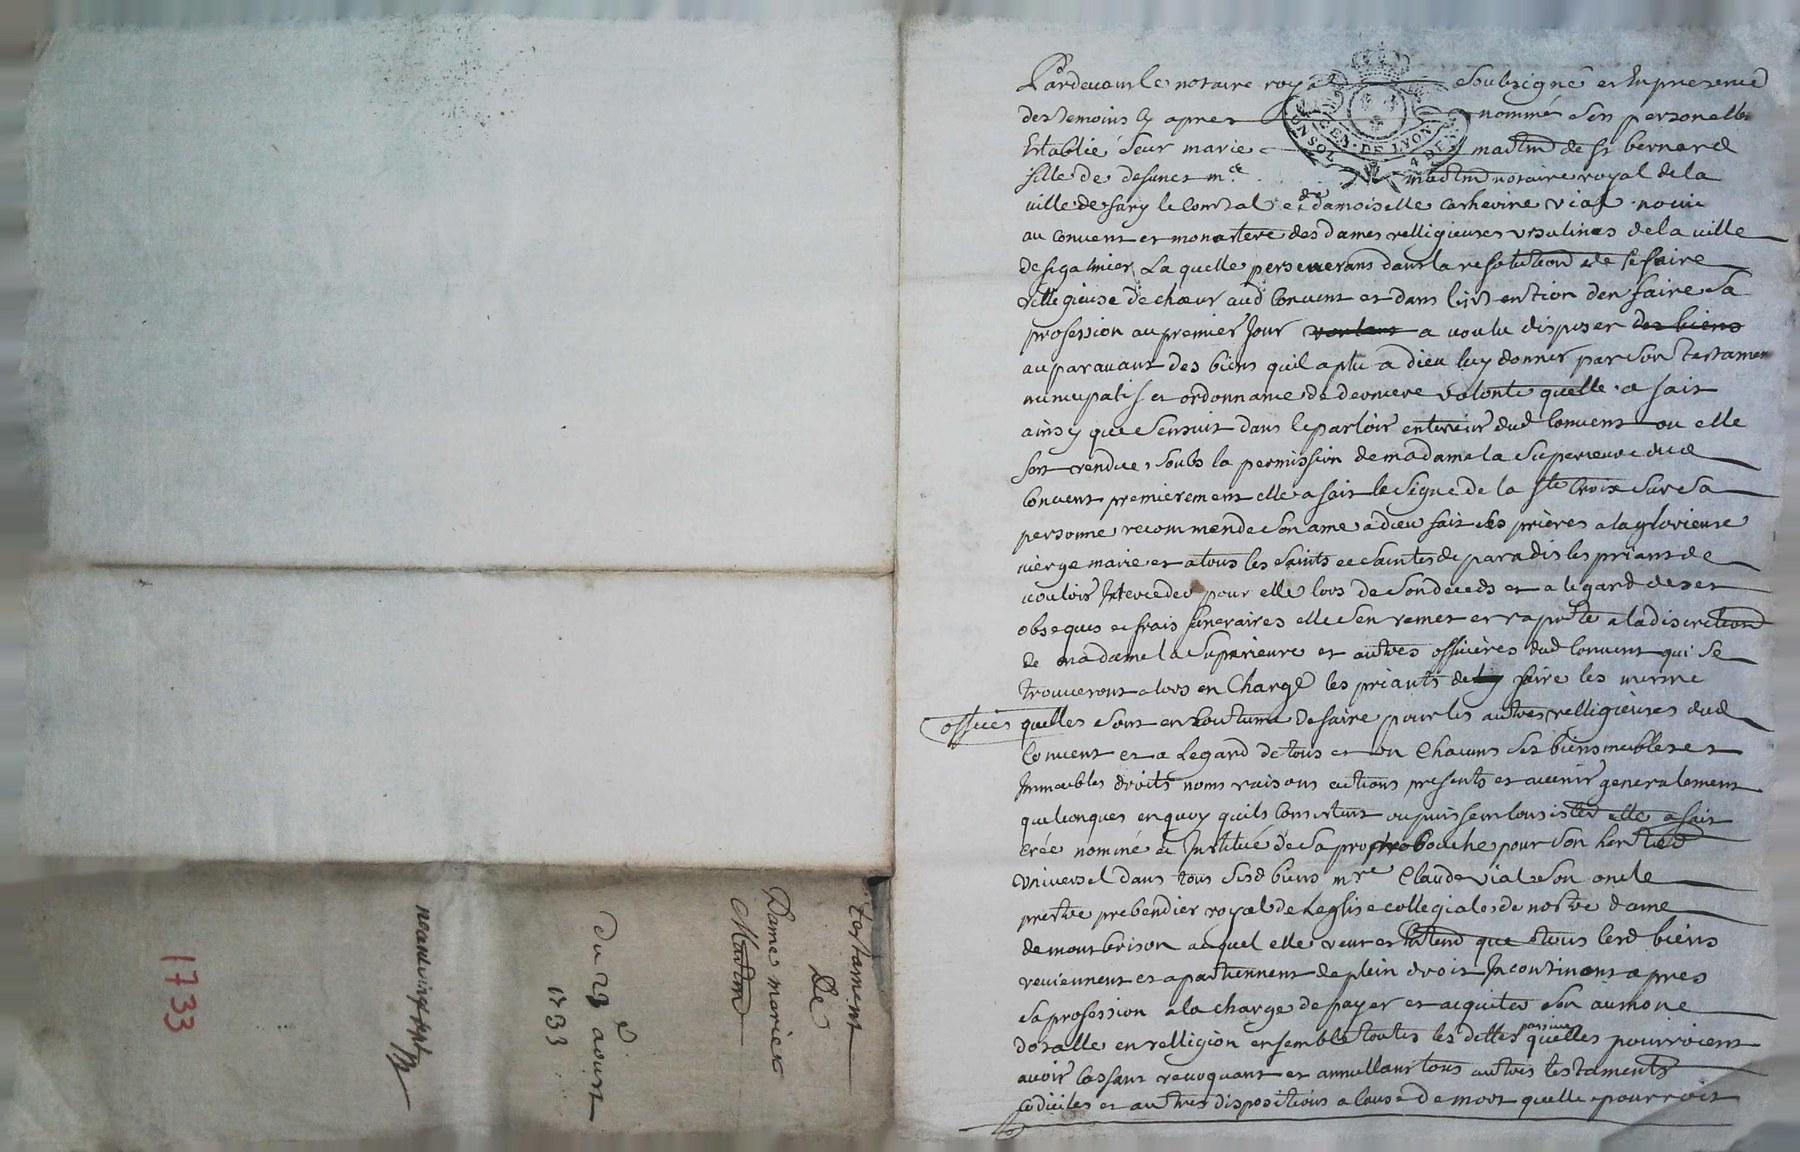 Pardevant le notaire royal soubsigné et en presence
des temoins cy apres nommés s'en personelle
Establie sœur marie mathon de st bernard
fille de defunct mre mathon notaire royal de la
ville de sury le Comtal et de damoiselle catherine vial novice
au convent et monastere des dames relligieuses ursulines de la ville
de st galmier, La quelle perseverans dans la resolution de se faire
relligieuse de chœur aud convent et dans l'intention d'en faire sa
profession au premier Jour voulant a voulu disposer des biens
auparavant des biens quil a plu a dieu luy donner par son testamen
nuncupatif et ordonnance de derniere volonté quelle a fait
ainsy que s'ensuit dans le parloir exterieur dud Convent ou elle
sest rendue, soubs la permission de madame la superieure dud
Convent premierement elle a fait le signe de la ste Croix sur sa
personne recommende son ame a dieu fait ses prières a la glorieuse
vierge marie et a tous les saints et saintes de paradis les priant de
vouloir Interceder pour elle lors de son deceds et a legard de ses
obseques et frais funeraires elle s'en remet et raporte a la discretion
de madame la Superieure et autres officières dud Convent qui se
trouveront alors en Charge les priants de luy faire les mesme
offices quelles sont en Coutume de faire pour les autres relligieuses dud
Convent et a Legard de tous et un Chacuns ses biens meubles et
Immeubles droits noms raisons actions presents et avenir generalement
quelconques en quoy quils consistent ou puissent consister elle a fait
créé nommé et Institué de sa propre bouche pour son heritier
universel dans tous sesd biens mre Claude vial son oncle
prestre prebendier royal de Leglise collegiale de nostre dame
de montbrison auquel elle veut et Entend que tous lesd biens
reviennent et apartiennent de plein droit Incontinent apres
sa profession a la charge de payer et acquiter son aumone
dotalle en relligion ensemble toutes les dettes passives quelles pourroient
avoir Cassant revoquant et annullant tous autres testaments
codiciles et autres dispositions a Cause de mort quelle pourroit
testament
De
Dame marie
Mathon
Du 29e aoust
1733
1733
CEN. DE LYON